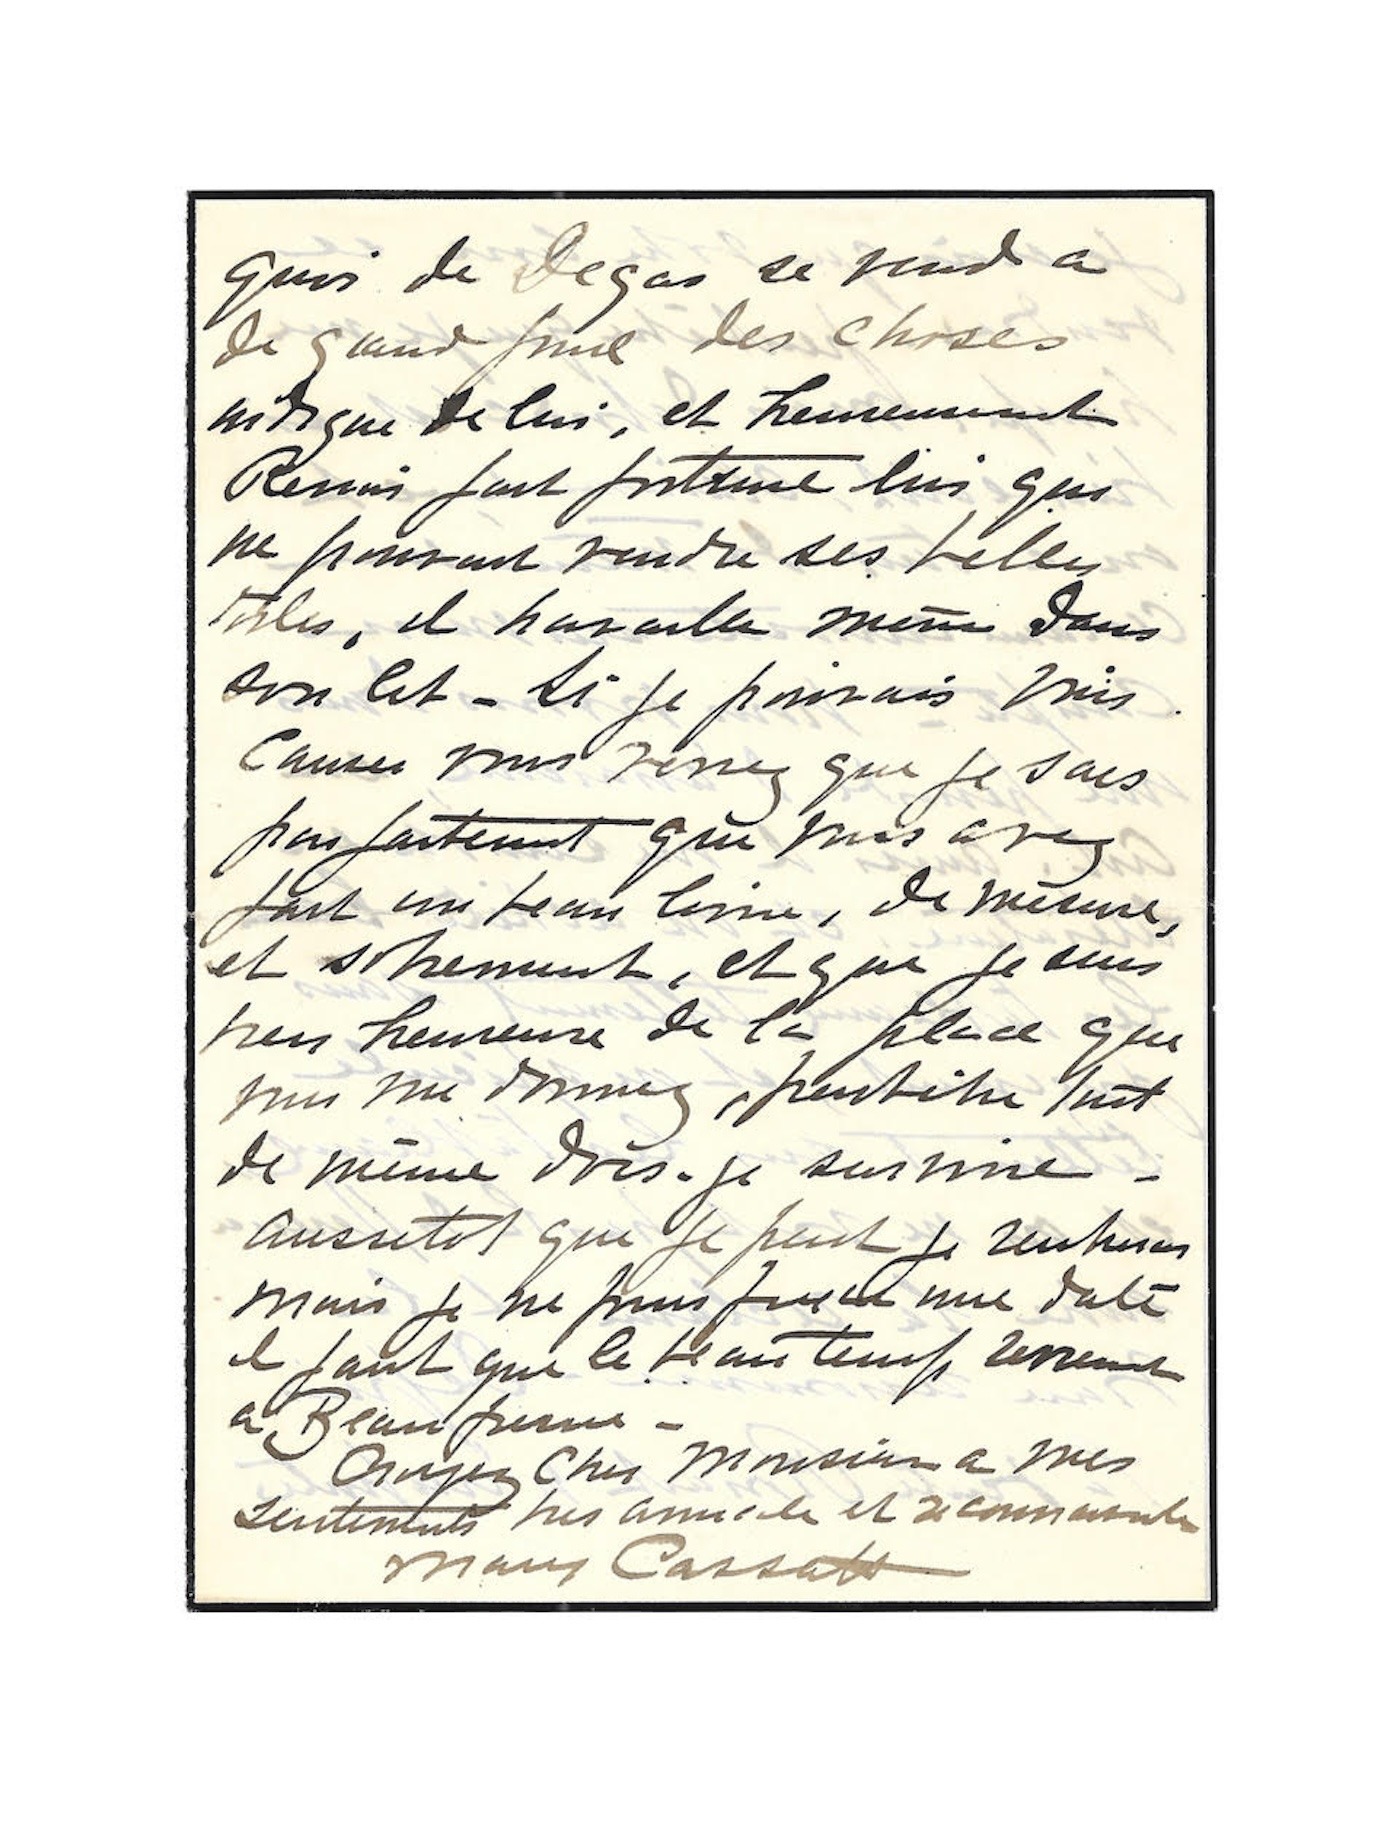 quoi de Degas se vend a
de grand prix des choses
indigne de lui, et heureusement
Renoir fait fortune lui qui
ne pouvait vendre ses belles
toiles, il travaille même dans
son lit - Si je pouvais vous
causer vous verrez que je sais
parfaitement que vous avez
fait un beau livre, de mesure,
et sobrement, et que je suis
tres heureuse de la place que
vous me donnez, peutêtre tout
de même dois-je survivre -
aussitot que je peut je rentrerai
mais je ne puis fixer une date
il faut que le beau temps revienne
a Beaufresne -
Croyez Cher Monsieur a mes
sentiments tres amicale et reconnaissante
Mary Cassatt